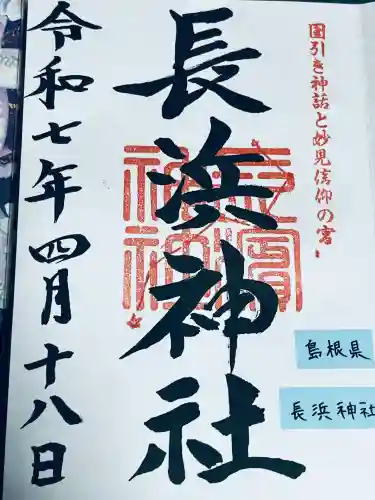 国引き神話と妙見信仰の宮
長浜神社
令和七年四月十八日
島根県
長浜神社